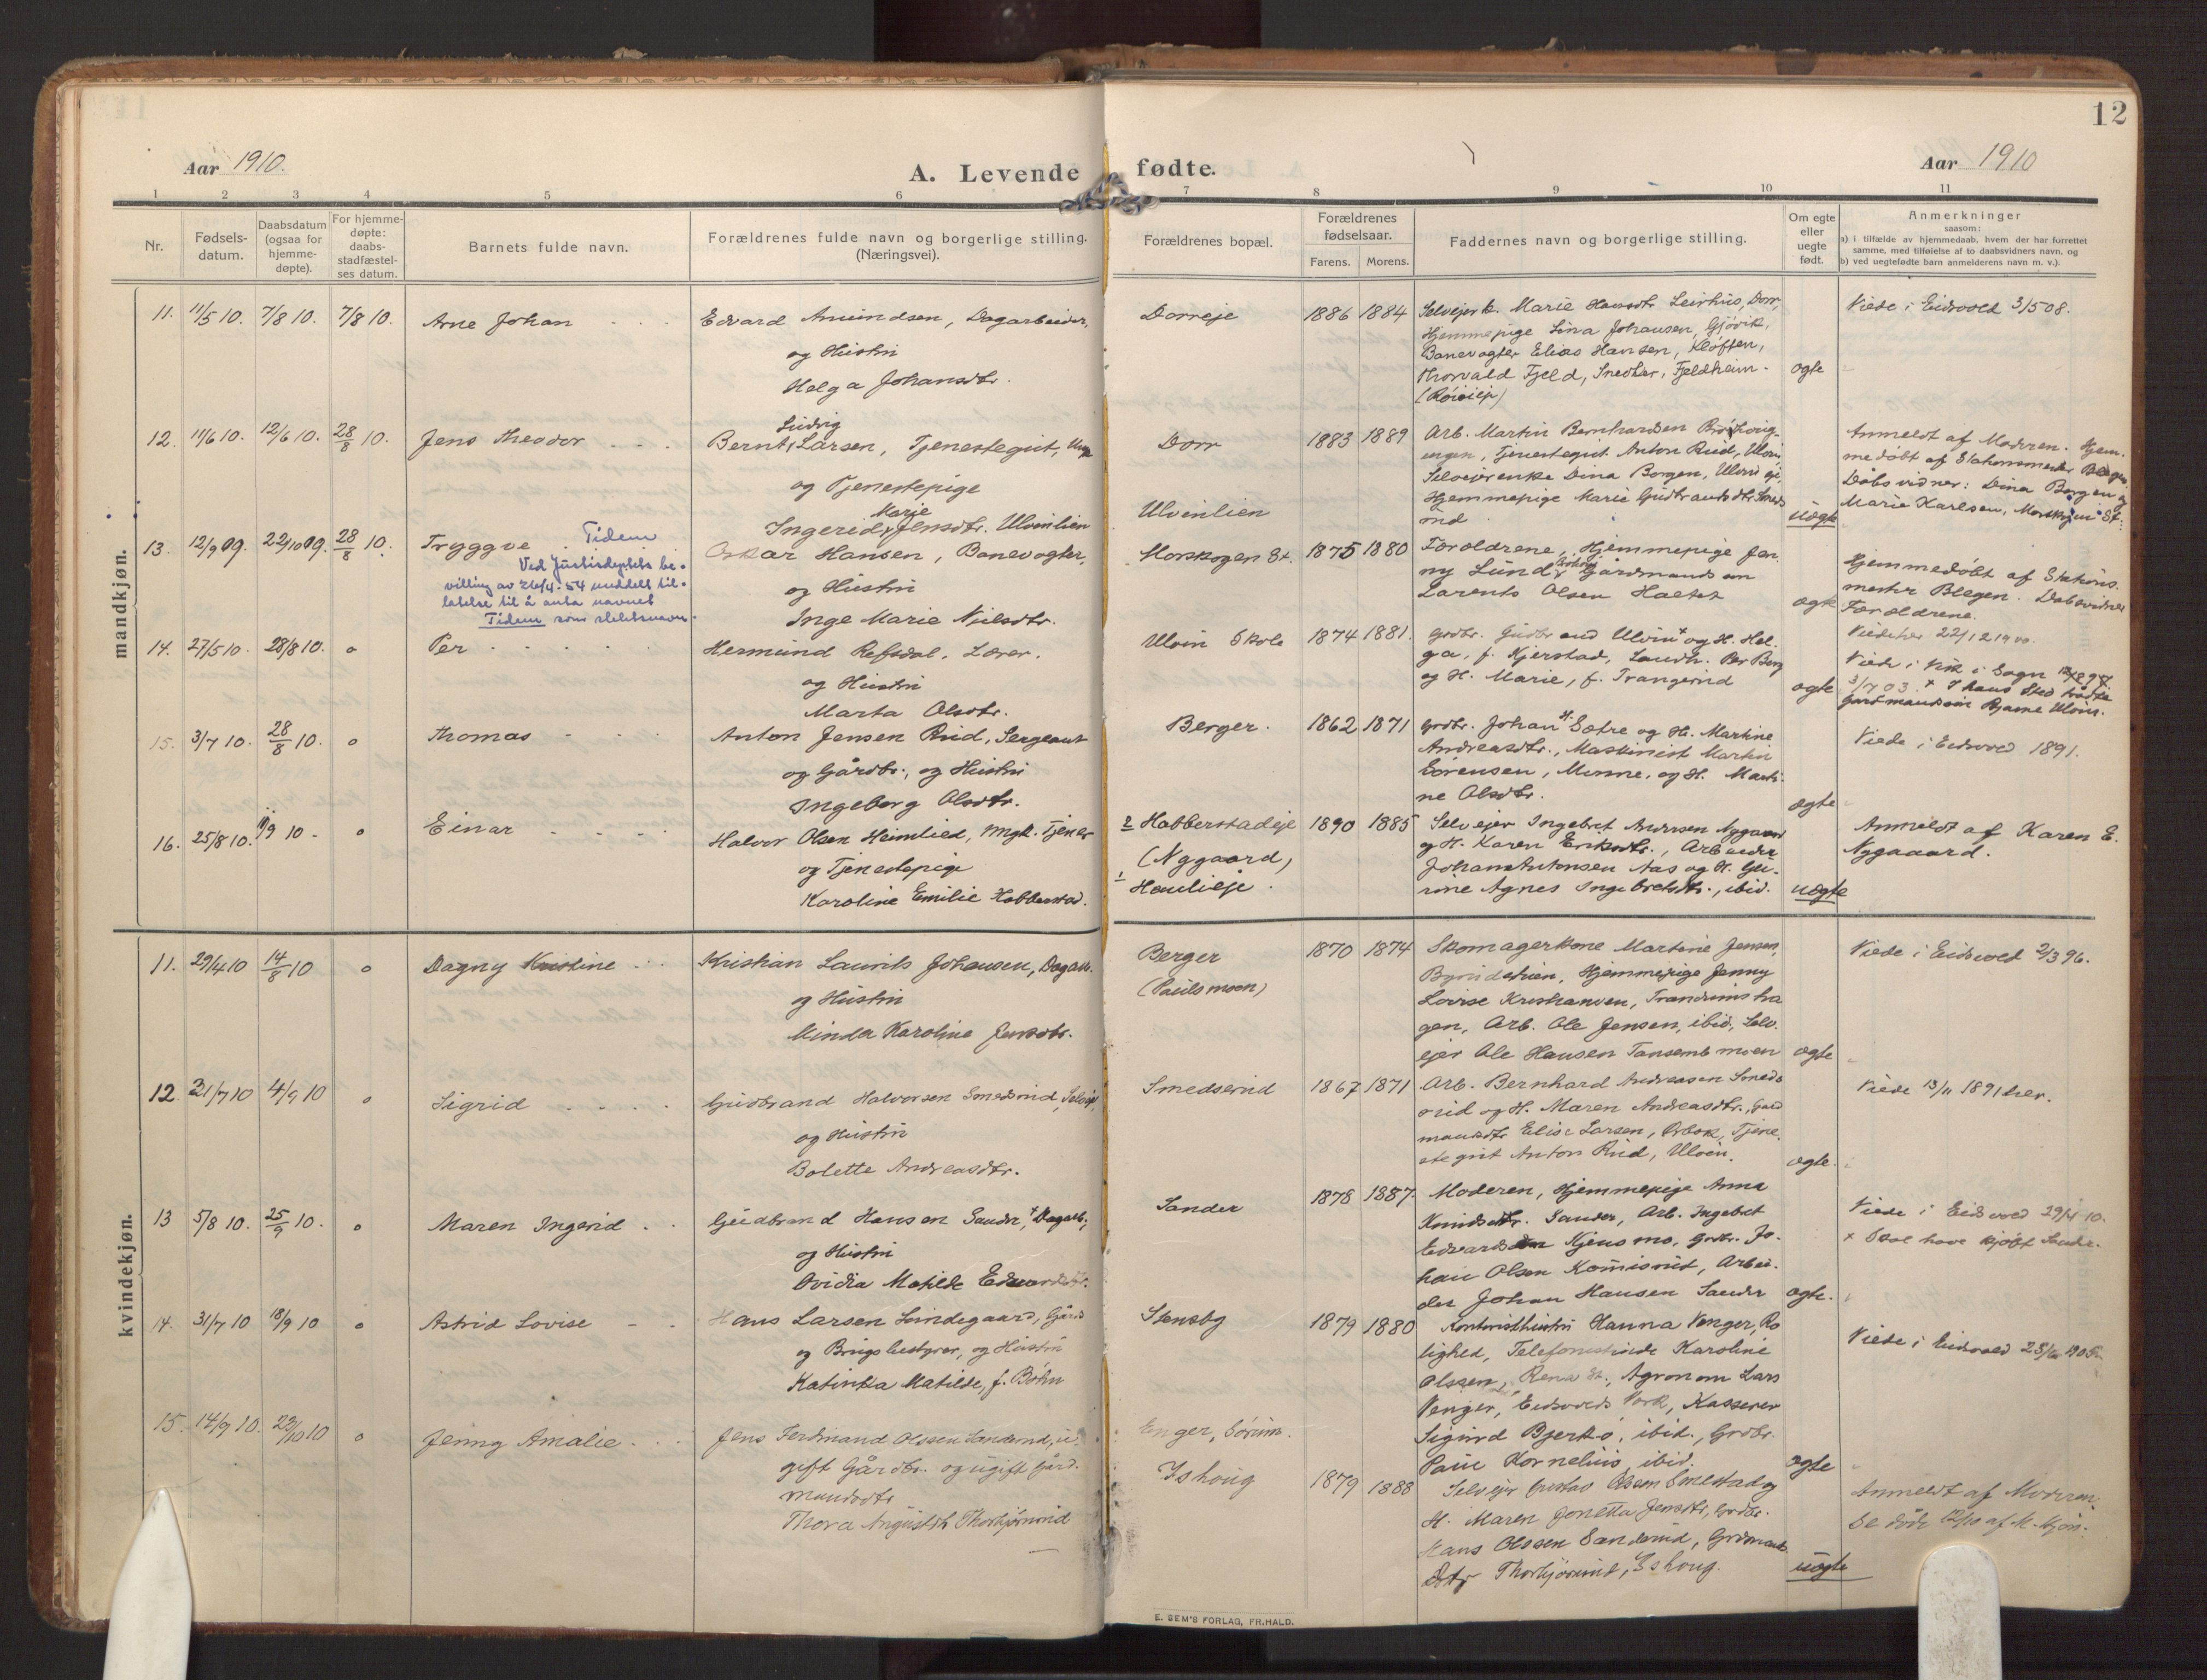 12
Aar 1910.
A. Levende fødte.
Aar 1910
1 2 3 4 5 6 7 8 9 10 11
Nr.
Fødsels-
datum.
Daabsdatum
(ogsaa for
hjemme-
døpte).
For hjemme-
døpte:
daabs-
stadfæstel-
ses datum.
Barnets fulde navn.
Forældrenes fulde navn og borgerlige stilling.
(Næringsvei).
Forældrenes bopæl.
Forældrenes
fødselsaar.
Farens. Morens.
Faddernes navn og borgerlige stilling.
Om egte
eller
uegte
født.
Anmerkninger
saasom:
a) i tilfælde av hjemmedaab, hvem der har forrettet
samme, med tilføielse af to daabsvidners navn, og
b) ved uegtefødte barn anmelderens navn m. v.).
mandkjøn.
11. 11/5 10. 7/8 10. 7/8 10.
Arne Johan
Edvard Amundsen, Dagarbeider,
og Hustru
Helga Johansdtr.
Dorreje
1886 1884
Selvejerk. Marie Hansdtr. Leirhus, Dorr,
Hjemmepige Lina Johansen, Gjövik,
Banevogter Elias Hansen, Klöften,
Thorvald Fjeld, Snedker, Fjeldheim.
ægte
Viede i Eidsvold 3/5 08.
12. 11/6 10. 12/6 10. 28/8 10.
Jens Theodor
Ludvig
Bernt Larsen, Tjenestegut, Ungk
og Tjenestepige
Marie
Ingerid Jensdtr. Ulvinlien
Dorr
Ulvinlien
1883 1889
Arb. Martin Bernhardsen
Tjenestegut Anton Ruud, Ulvin
Selvejerenke Dina Borgen, Ulvin eje,
Hjemmepige Marie Gudbrandsdtr. Smeds
rud
uægte
Anmeldt af Moderen. Hjem-
medöbt af Stationsmester Blegen
Döbsvidner: Dina Borgen og
Marie Karlsen, Morskogen St.
13. 12/9 09. 22/10 09. 28/8 10.
Tryggve Tidem
Ved Justisdeptets be-
villing av 26/4-54 meddelt til-
latelse til å anta navnet
Tidem som slektsnavn.
Oskar Hansen, Banevogter,
og Hustru
Inge Marie Nielsdtr.
Morskogen St.
1875 1880
Forældrene, Hjemmepige Jen-
ny Lund, Gårdmandssön
Larents Olsen Holtet
ægte
Hjemmedöbt af Stations-
mester Blegen. Dabsvidner
Forældrene.
Viede her 22/12 1900.
14. 27/5 10. 28/8 10. o
Per
Hermund Refsdal, Lærer.
og Hustru
Marta Olsdtr.
Ulvin Skole
1874 1881.
Grdbr. Gudbrand Ulvin og H. Hel-
ga, f. Kjerstad, Landh. Per Berg
og H. Marie, f. Trangerud
ægte
Viede i Vik i Sogn
3/7 03. + I hans Sted trådte
Gardmandssön Bjarne Ulvin.
15. 3/7 10. 28/8 10. o
Thomas
Anton Jensen Ruud, Sergeant
og Gårdbr., og Hustru
Ingeborg Olsdtr.
Berger.
1862 1871
Grdbr. Johan H. Sætre og H. Martine
Andreasdtr., Maskinist Martin
Sörensen, Minne, og H. Marti-
ne Olsdtr.
ægte
Viede i Eidsvold 1891.
16. 25/8 10. 11/9 10. o
Einar
Halvor Olsen Heimlied, Ungk. Tjener
og Tjenestepige
Karoline Emilie Hobberstad.
2 Hobberstadeje
(Nygaard)
1 Houlieje.
1890 1885
Selvejer Ingebret Andersen Nygaard
og H. Karen Eriksdtr., Arbeider
Johan Antonsen Aas og H. Gu-
rine Agnes Ingebretsdtr., ibid.
uægte
Anmeldt af Karen E.
Nygaaard.
kvindekjøn.
11. 29/4 10 14/8 10 o
Dagny Kristine
Kristian Laurits Johansen, Dagarb.
og Hustru
Minda Karoline Jensdtr.
Berger
(Paulsmoen)
1870 1874
Skomagerkone Martine Jensen,
Hjemmepige Jenny
Lovise Kristiansen, Trandumsha-
gen, Arb. Ole Jensen, ibid, Selv-
ejer Ole Hansen Tansembmoen
ægte
Viede i Eidsvold 2/3 96.
12. 31/7 10 4/9 10 o
Sigrid
Gudbrand Halvorsen Smedsrud, Selvejer,
og Hustru
Bolette Andreasdtr.
Smedsrud
1867 1871
Arb. Bernhard Andreasen Smeds
rud og H. Maren Andreasdtr., Gard
mandsdtr. Elise Larsen, Arbok, Tjene-
stegut Anton Ruud, Ulvin.
ægte.
Viede 13/11 1891 her.
13 5/8 10. 25/9 10. o
Maren Ingerid
Gudbrand Hansen Sander, + Dagarb.,
og Hustru
Ovidia Matilde Edvardsdtr.
Sander
1878 1887.
Moderen, Hjemmepige Anna
Knudsdtr. Sander, Arb. Ingebret
Edvardsen Kjensmo, Grdbr. Jo-
han Olsen Komisrud, Arbei-
der Johan Hansen Sander
ægte.
Viede i Eidsvold 29/4 10.
+ Skal have kjöbt Sander.
14. 31/7 10 18/9 10 o
Astrid Lovise
Hans Larsen Lundegaard, Gård
og Brugsbestyrer, og Hustru
Katinka Matilde, f. Böhn
Stensby
1879 1880
Kontoristhustru Hanna Venger, Ro-
lighed, Karoline
Olssen, Rena St., Agronom Lars
Venger, Eidsvolds Værk, Kasserer
Sigurd Bjerkö, ibid., Grdbr.
Paul Kornelius, ibid.
ægte
Viede i Eidsvold
15. 14/9 10. 23/10 10 o
Jenny Amalie
Jens Ferdinand Olssen Sanderud, u-
gift Gårdbr. og ugift Gård-
mandsdtr.
Thora Augusta Thorbjörnrud
Enger, Sörum.
Ishoug
1879 1888
Selvejer Gustav Olsen Smestad og
H. Maren Jonetta Jensdtr., Grdbr.
Hans Olssen Sanderud, Grdmands
Dtr Thorbjörnrud, Ishoug.
uægte
Anmeldt af Moderen.
E. SEM'S FORLAG, FR.HALD.